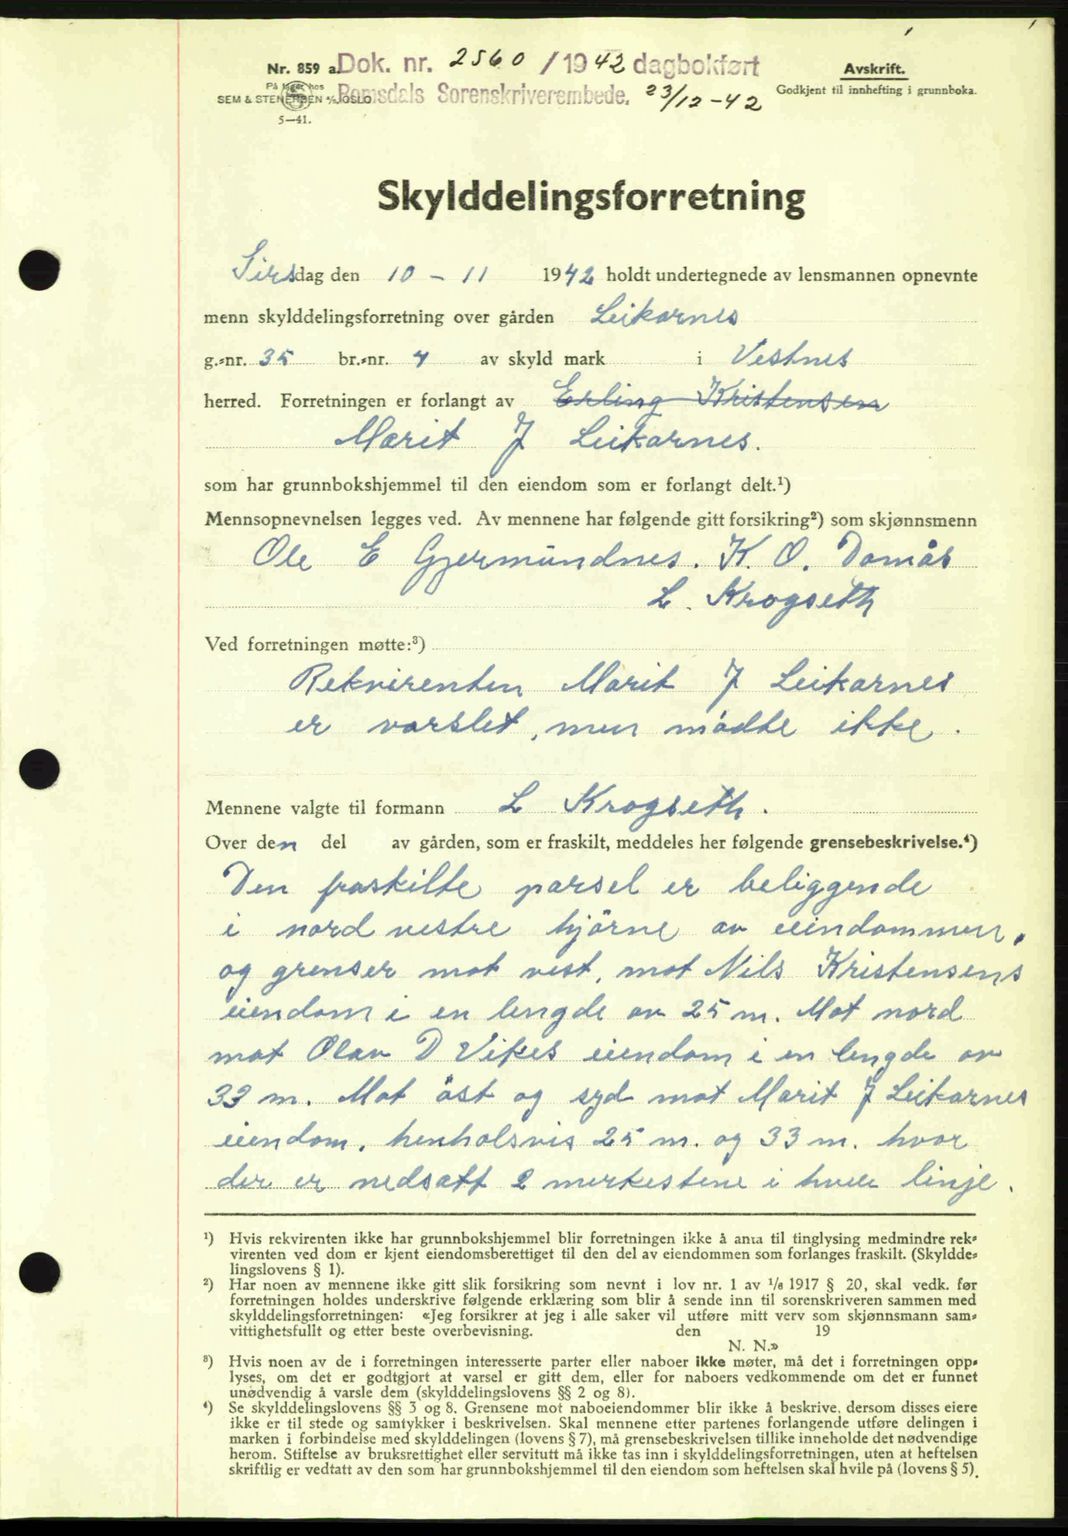 Nr. 859 a. Dok. nr. 2560 / 1942 dagbokført
På lager hos
SEM & STENERSEN A/S OSLO. Romsdals Sorenskriverembede. 23/12-42
5—41.
Avskrift.
Godkjent til innhefting i grunnboka.
Skylddelingsforretning
Tirsdag den 10 - 11 1942 holdt undertegnede av lensmannen opnevnte
menn skylddelingsforretning over gården Leikarnes
g.-nr. 35 br.-nr. 4 av skyld mark i Vestnes
herred. Forretningen er forlangt av Erling Kristensen
Marit J Leikarnes.
som har grunnbokshjemmel til den eiendom som er forlangt delt.¹)
Mennsopnevnelsen legges ved. Av mennene har følgende gitt forsikring²) som skjønnsmenn
Ole E Gjermundnes. K. O. Domås
L. Krogseth
Ved forretningen møtte:³)
Rekvirenten Marit J Leikarnes
er varslet, men mødte ikke.
Mennene valgte til formann L Krogseth.
Over den del av gården, som er fraskilt, meddeles her følgende grensebeskrivelse.⁴)
Den fraskilte parsel er beliggende
i nord vestre hjørne av eiendommen,
og grenser mot vest, mot Nils Kristensens
eiendom i en lengde av 25 m. Mot nord
mot Olav D Vikes eiendom i en lengde av
33 m. Mot öst og syd mot Marit J Leikarnes
eiendom, henholsvis 25 m. og 33 m. hvor
der er nedsatt 2 merkestene i hver linje.
¹) Hvis rekvirenten ikke har grunnbokshjemmel blir forretningen ikke å anta til tinglysing medmindre rek-
virenten ved dom er kjent eiendomsberettiget til den del av eiendommen som forlanges fraskilt. (Skyldde-
lingslovens § 1).
²) Har noen av mennene ikke gitt slik forsikring som nevnt i lov nr. 1 av ¹/₆ 1917 § 20, skal vedk. før
forretningen holdes underskrive følgende erklæring som blir å sende inn til sorenskriveren sammen med
skylddelingsforretningen: «Jeg forsikrer at jeg i alle saker vil utføre mitt verv som skjønnsmann sam-
vittighetsfullt og etter beste overbevisning. den 19
N. N.»
³) Hvis noen av de i forretningen interesserte parter eller naboer ikke møter, må det i forretningen opp-
lyses, om det er godtgjort at varsel er gitt dem, eller for naboers vedkommende om det er funnet
unødvendig å varsle dem (skylddelingslovens §§ 2 og 8).
⁴) Se skylddelingslovens §§ 3 og 8. Grensene mot naboeiendommer blir ikke å beskrive, dersom disses eiere
ikke er til stede og samtykker i beskrivelsen. Skal mennene etter partenes forlangende utføre delingen i
marken i forbindelse med skylddelingen (lovens § 7), må grensebeskrivelsen tillike inneholde det nødvendige
herom. Stiftelse av bruksrettighet eller servitutt må ikke tas inn i skylddelingsforretningen, uten at heftelsen
skriftlig er vedtatt av den som har grunnbokshjemmel til den eiendom som heftelsen skal hvile på (lovens § 5).